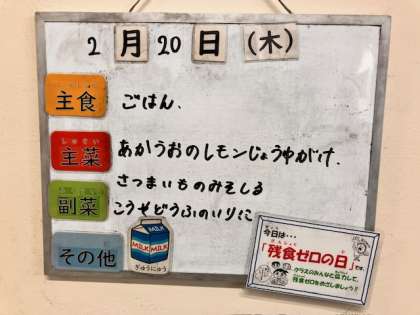 2月20日(木)
主食 ごはん、
主菜 あかうおのレモンじょうゆがけ、
さつまいものみそしる
副菜 こうやどうふのいりに
その他 MILK MILK
ぎゅうにゅう
今日は…
「残食ゼロの日」です。
クラスのみんなと協力して、
残食ゼロをめざしましょう!!